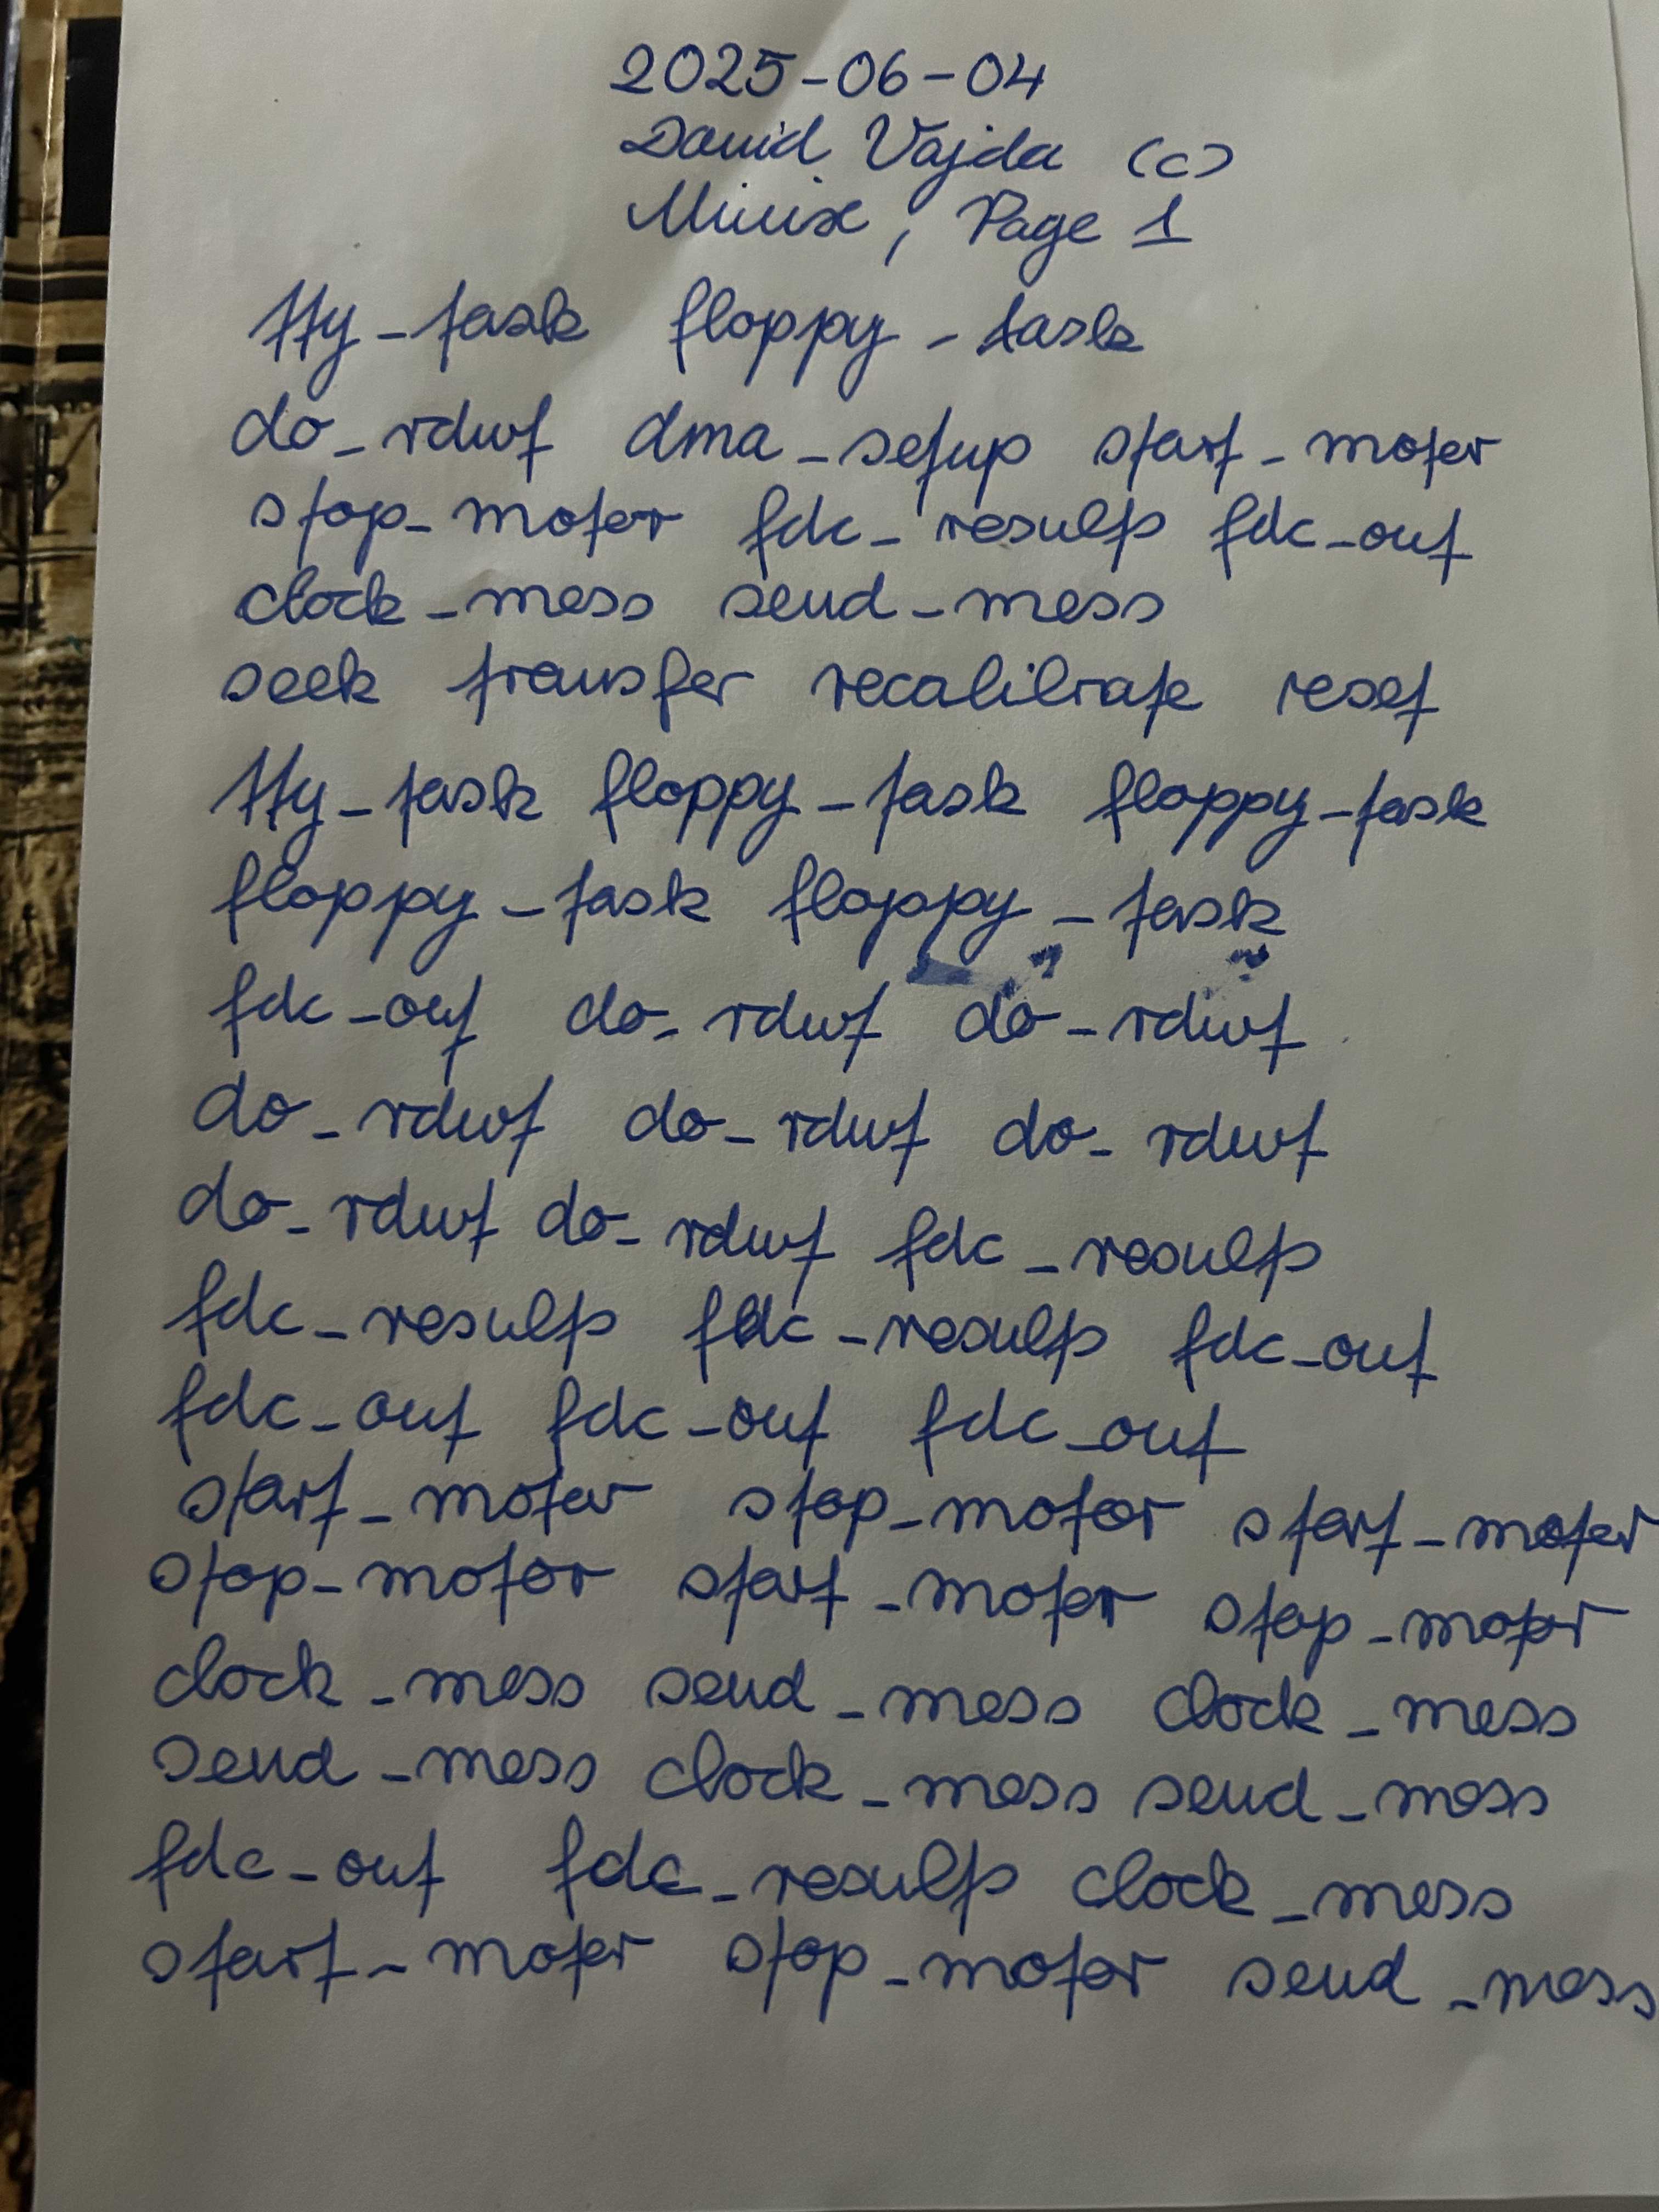 2025-06-04
David Vajda (c)
Minix, Page 1
tty_task floppy_task
do_rdwt dma_setup start_moter
stop_moter fdc_results fdc_out
clock_mess send_mess
seek transfer recalibrate reset
tty_task floppy_task floppy_task
floppy_task floppy_task
fdc_out do_rdwt do_rdwt
do_rdwt do_rdwt do_rdwt
do_rdwt do_rdwt fdc_results
fdc_results fdc_results fdc_out
fdc_out fdc_out fdc_out
start_moter stop_motor start_moter
stop_motor start_moter stop_moter
clock_mess send_mess clock_mess
send_mess clock_mess send_mess
fdc_out fdc_results clock_mess
start_moter stop_moter send_mess